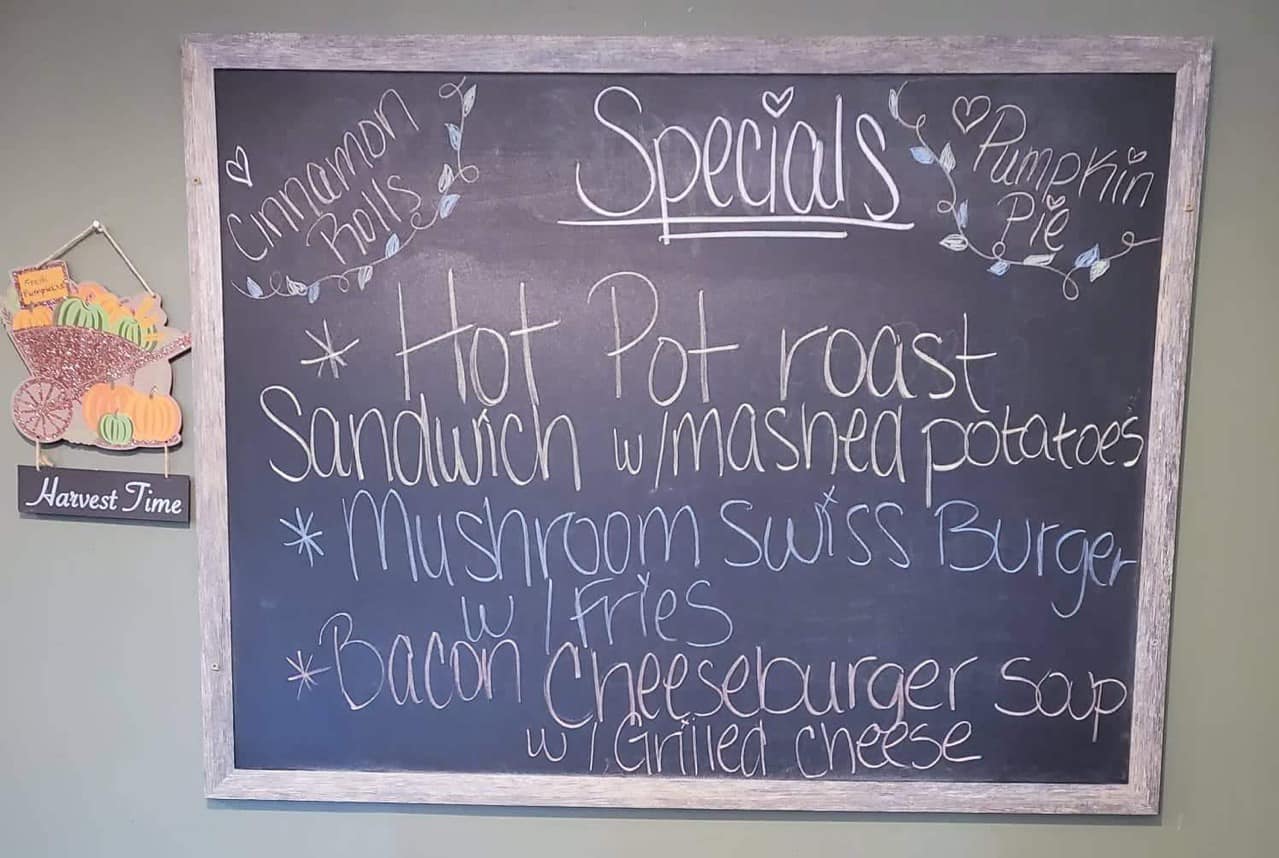 Specials
Cinnamon
Rolls
Pumpkin
Pie
* Hot Pot roast
Sandwich w/mashed potatoes
* Mushroom Swiss Burger
w/Fries
* Bacon Cheeseburger Soup
w/Grilled cheese
Fresh
Pumpkins
Harvest Time